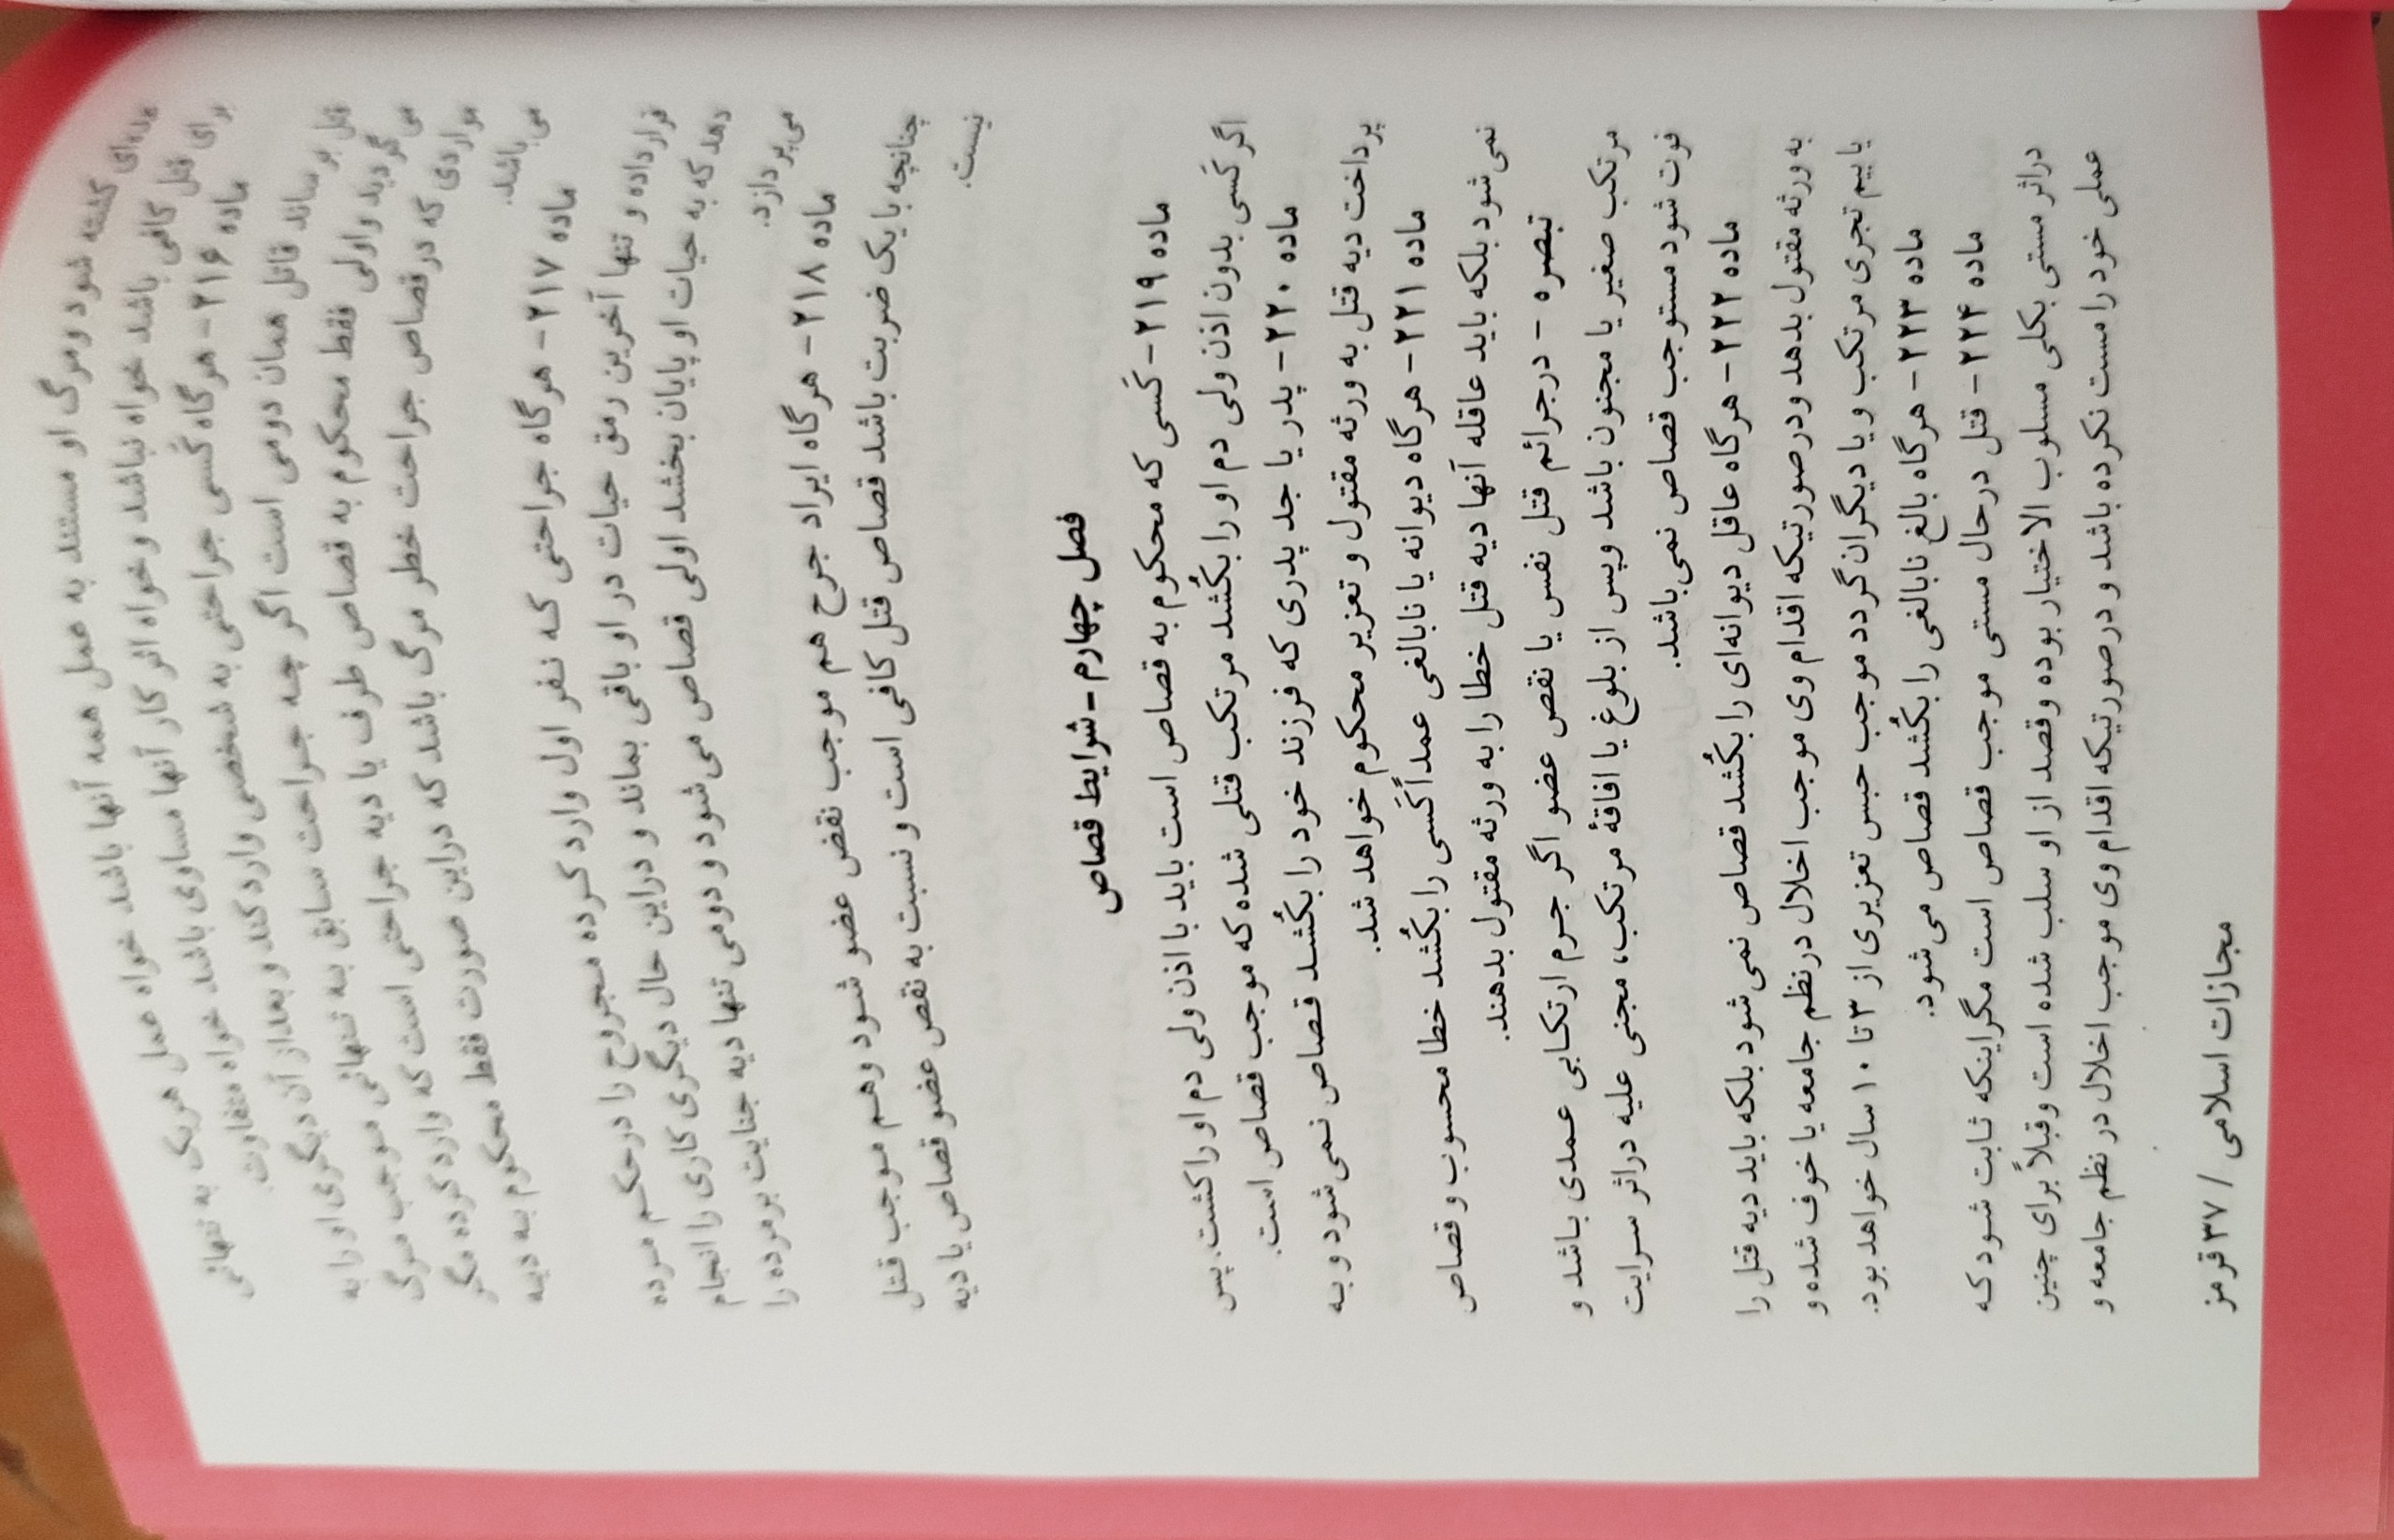 عده‌ای کشته شود و مرگ او مستند به عمل همه آنها باشد خواه عمل هریک به تنهائی
برای قتل کافی باشد خواه نباشد و خواه اثر کار آنها مساوی باشد خواه متفاوت.
ماده ۲۱۶- هرگاه کسی جراحتی به شخصی وارد کند و بعد از آن دیگری او را به
قتل برساند قاتل همان دومی است اگر چه جراحت سابق به تنهائی موجب مرگ
می‌گردید و اولی فقط محکوم به قصاص طرف یا دیه جراحتی است که وارد کرده مگر
مواردی که در قصاص جراحت خطر مرگ باشد که دراین صورت فقط محکوم به دیه
می‌باشد.
ماده ۲۱۷- هرگاه جراحتی که نفر اول وارد کرده مجروح را درحکم مرده
قرار داده و تنها آخرین رمق حیات در او باقی بماند و دراین حال دیگری کاری را انجام
دهد که به حیات او پایان بخشد اولی قصاص می‌شود و دومی تنها دیه جنایت بر مرده را
می‌پردازد.
ماده ۲۱۸- هرگاه ایراد جرح هم موجب نقض عضو شود وهم موجب قتل
چنانچه با یک ضربت باشد قصاص قتل کافی است و نسبت به نقص عضو قصاص یا دیه
نیست.
فصل چهارم - شرایط قصاص
ماده ۲۱۹- کَسی که محکوم به قصاص است باید با اذن ولی دم او را کشت. پس
اگر کَسی بدون اذن ولی دم او را بکُشد مرتکب قتلی شده که موجب قصاص است.
ماده ۲۲۰- پدر یا جد پدری که فرزند خود را بکُشد قصاص نمی‌شود و به
پرداخت دیه قتل به ورثه مقتول و تعزیر محکوم خواهد شد.
ماده ۲۲۱- هرگاه دیوانه یا نابالغی عمداً کَسی را بکُشد خطا محسوب و قصاص
نمی‌شود بلکه باید عاقله آنها دیه قتل خطا را به ورثه مقتول بدهند.
تبصره - درجرائم قتل نفس یا نقص عضو اگر جرم ارتکابی عمدی باشد و
مرتکب صغیر یا مجنون باشد وپس از بلوغ یا افاقهٔ مرتکب، مجنی علیه دراثر سرایت
فوت شود مستوجب قصاص نمی‌باشد.
ماده ۲۲۲- هرگاه عاقل دیوانه‌ای را بکُشد قصاص نمی‌شود بلکه باید دیه قتل را
به ورثه مقتول بدهد ودرصورتیکه اقدام وی موجب اخلال درنظم جامعه یا خوف شده و
یا بیم تجری مرتکب و یا دیگران گردد موجب حبس تعزیری از ۳ تا ۱۰ سال خواهد بود.
ماده ۲۲۳- هرگاه بالغ نابالغی را بکُشد قصاص می‌شود.
ماده ۲۲۴- قتل درحال مستی موجب قصاص است مگراینکه ثابت شود که
دراثر مستی بکلی مسلوب الاختیار بوده وقصد از او سلب شده است وقبلاً برای چنین
عملی خود را مست نکرده باشد و درصورتیکه اقدام وی موجب اخلال در نظم جامعه و
مجازات اسلامی / ۳۷ قرمز